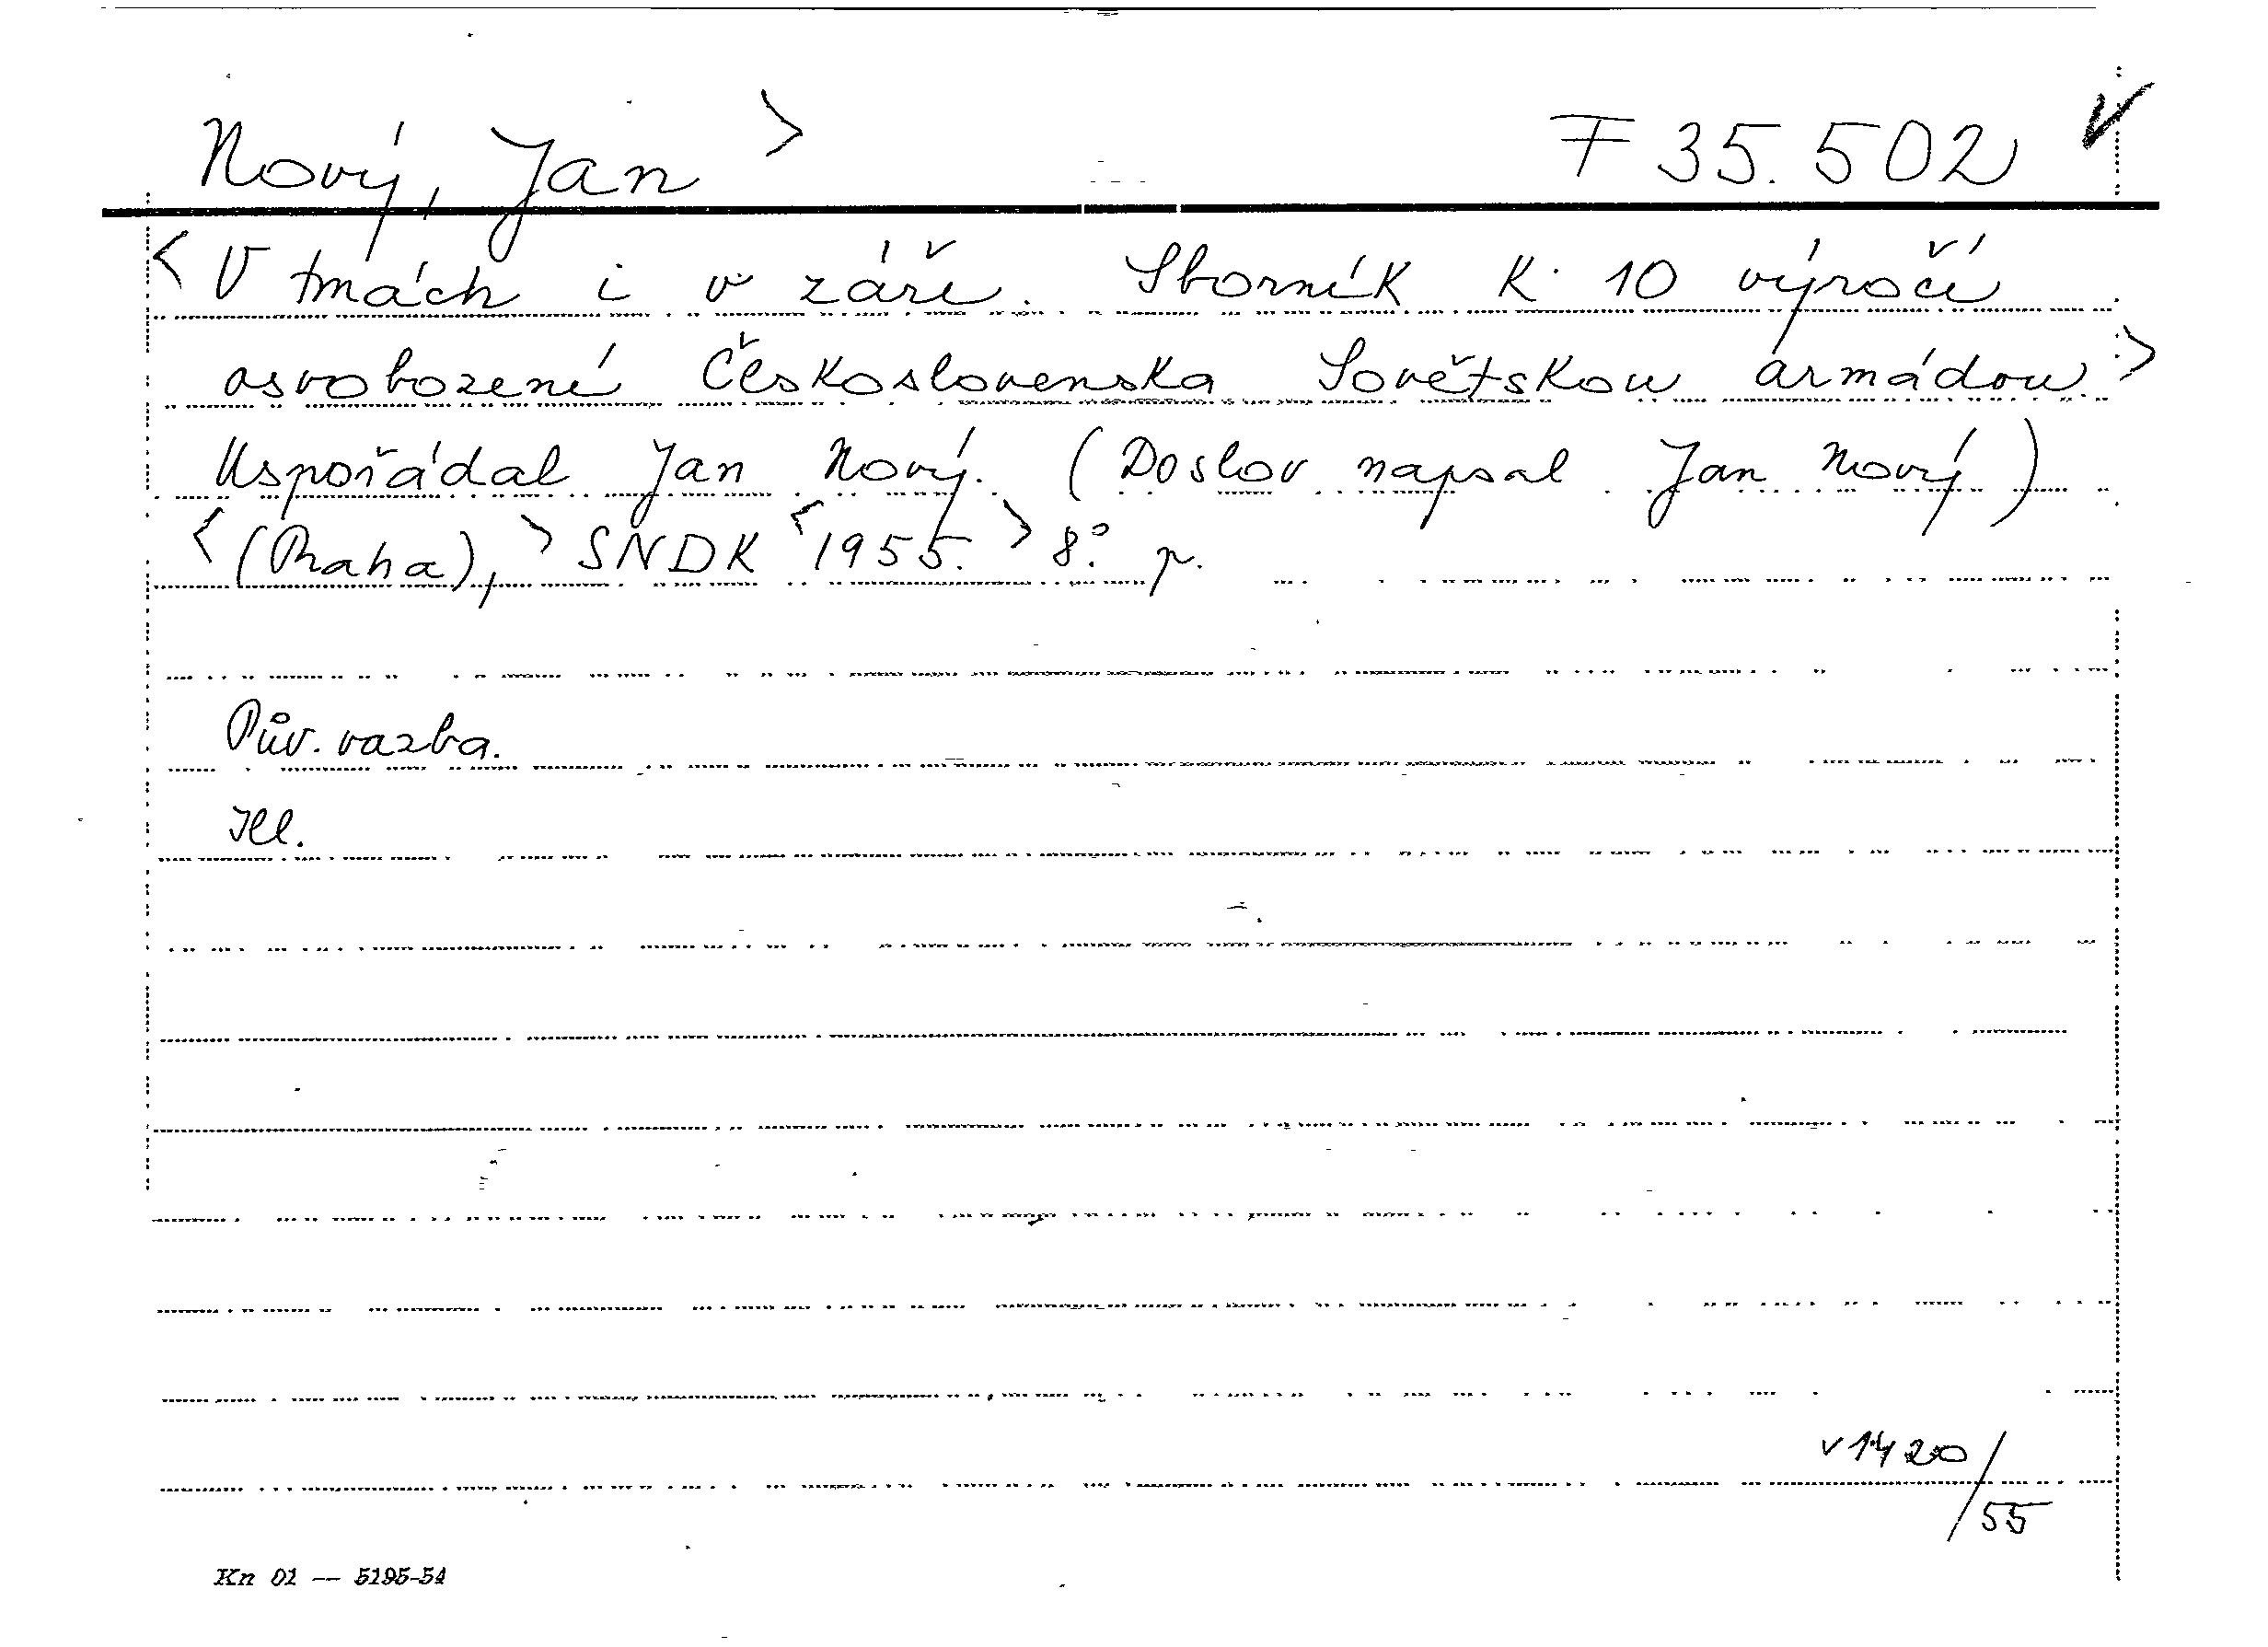 Nový, Jan > F 35.502 v
< V tmách i v záři. Sborník k 10 výročí
osvobození Československa Sovětskou armádou >
Uspořádal Jan Nový. (Doslov napsal Jan Nový)
< (Praha), > SNDK < 1955. > 8° p.
Pův. vazba.
Ill.
v 1420/55
Kn 01 — 5195-54